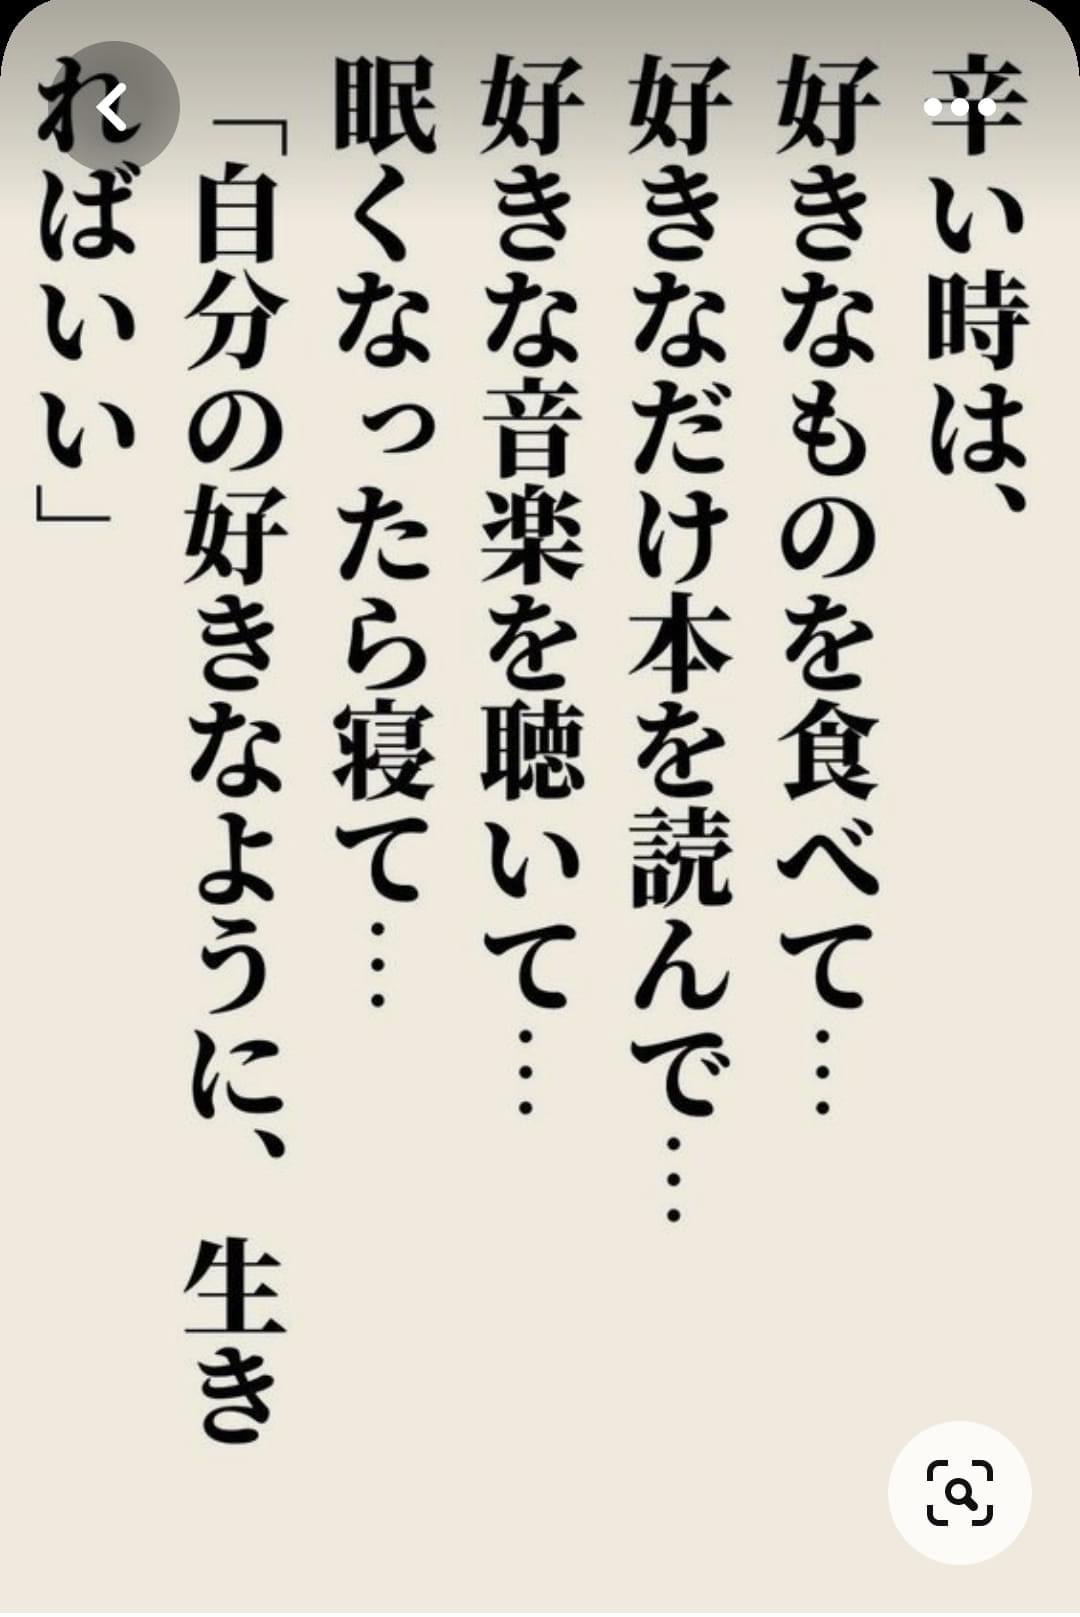 辛い時は、
好きなものを食べて…
好きなだけ本を読んで…
好きな音楽を聴いて…
眠くなったら寝て…
「自分の好きなように、 生き
ればいい」